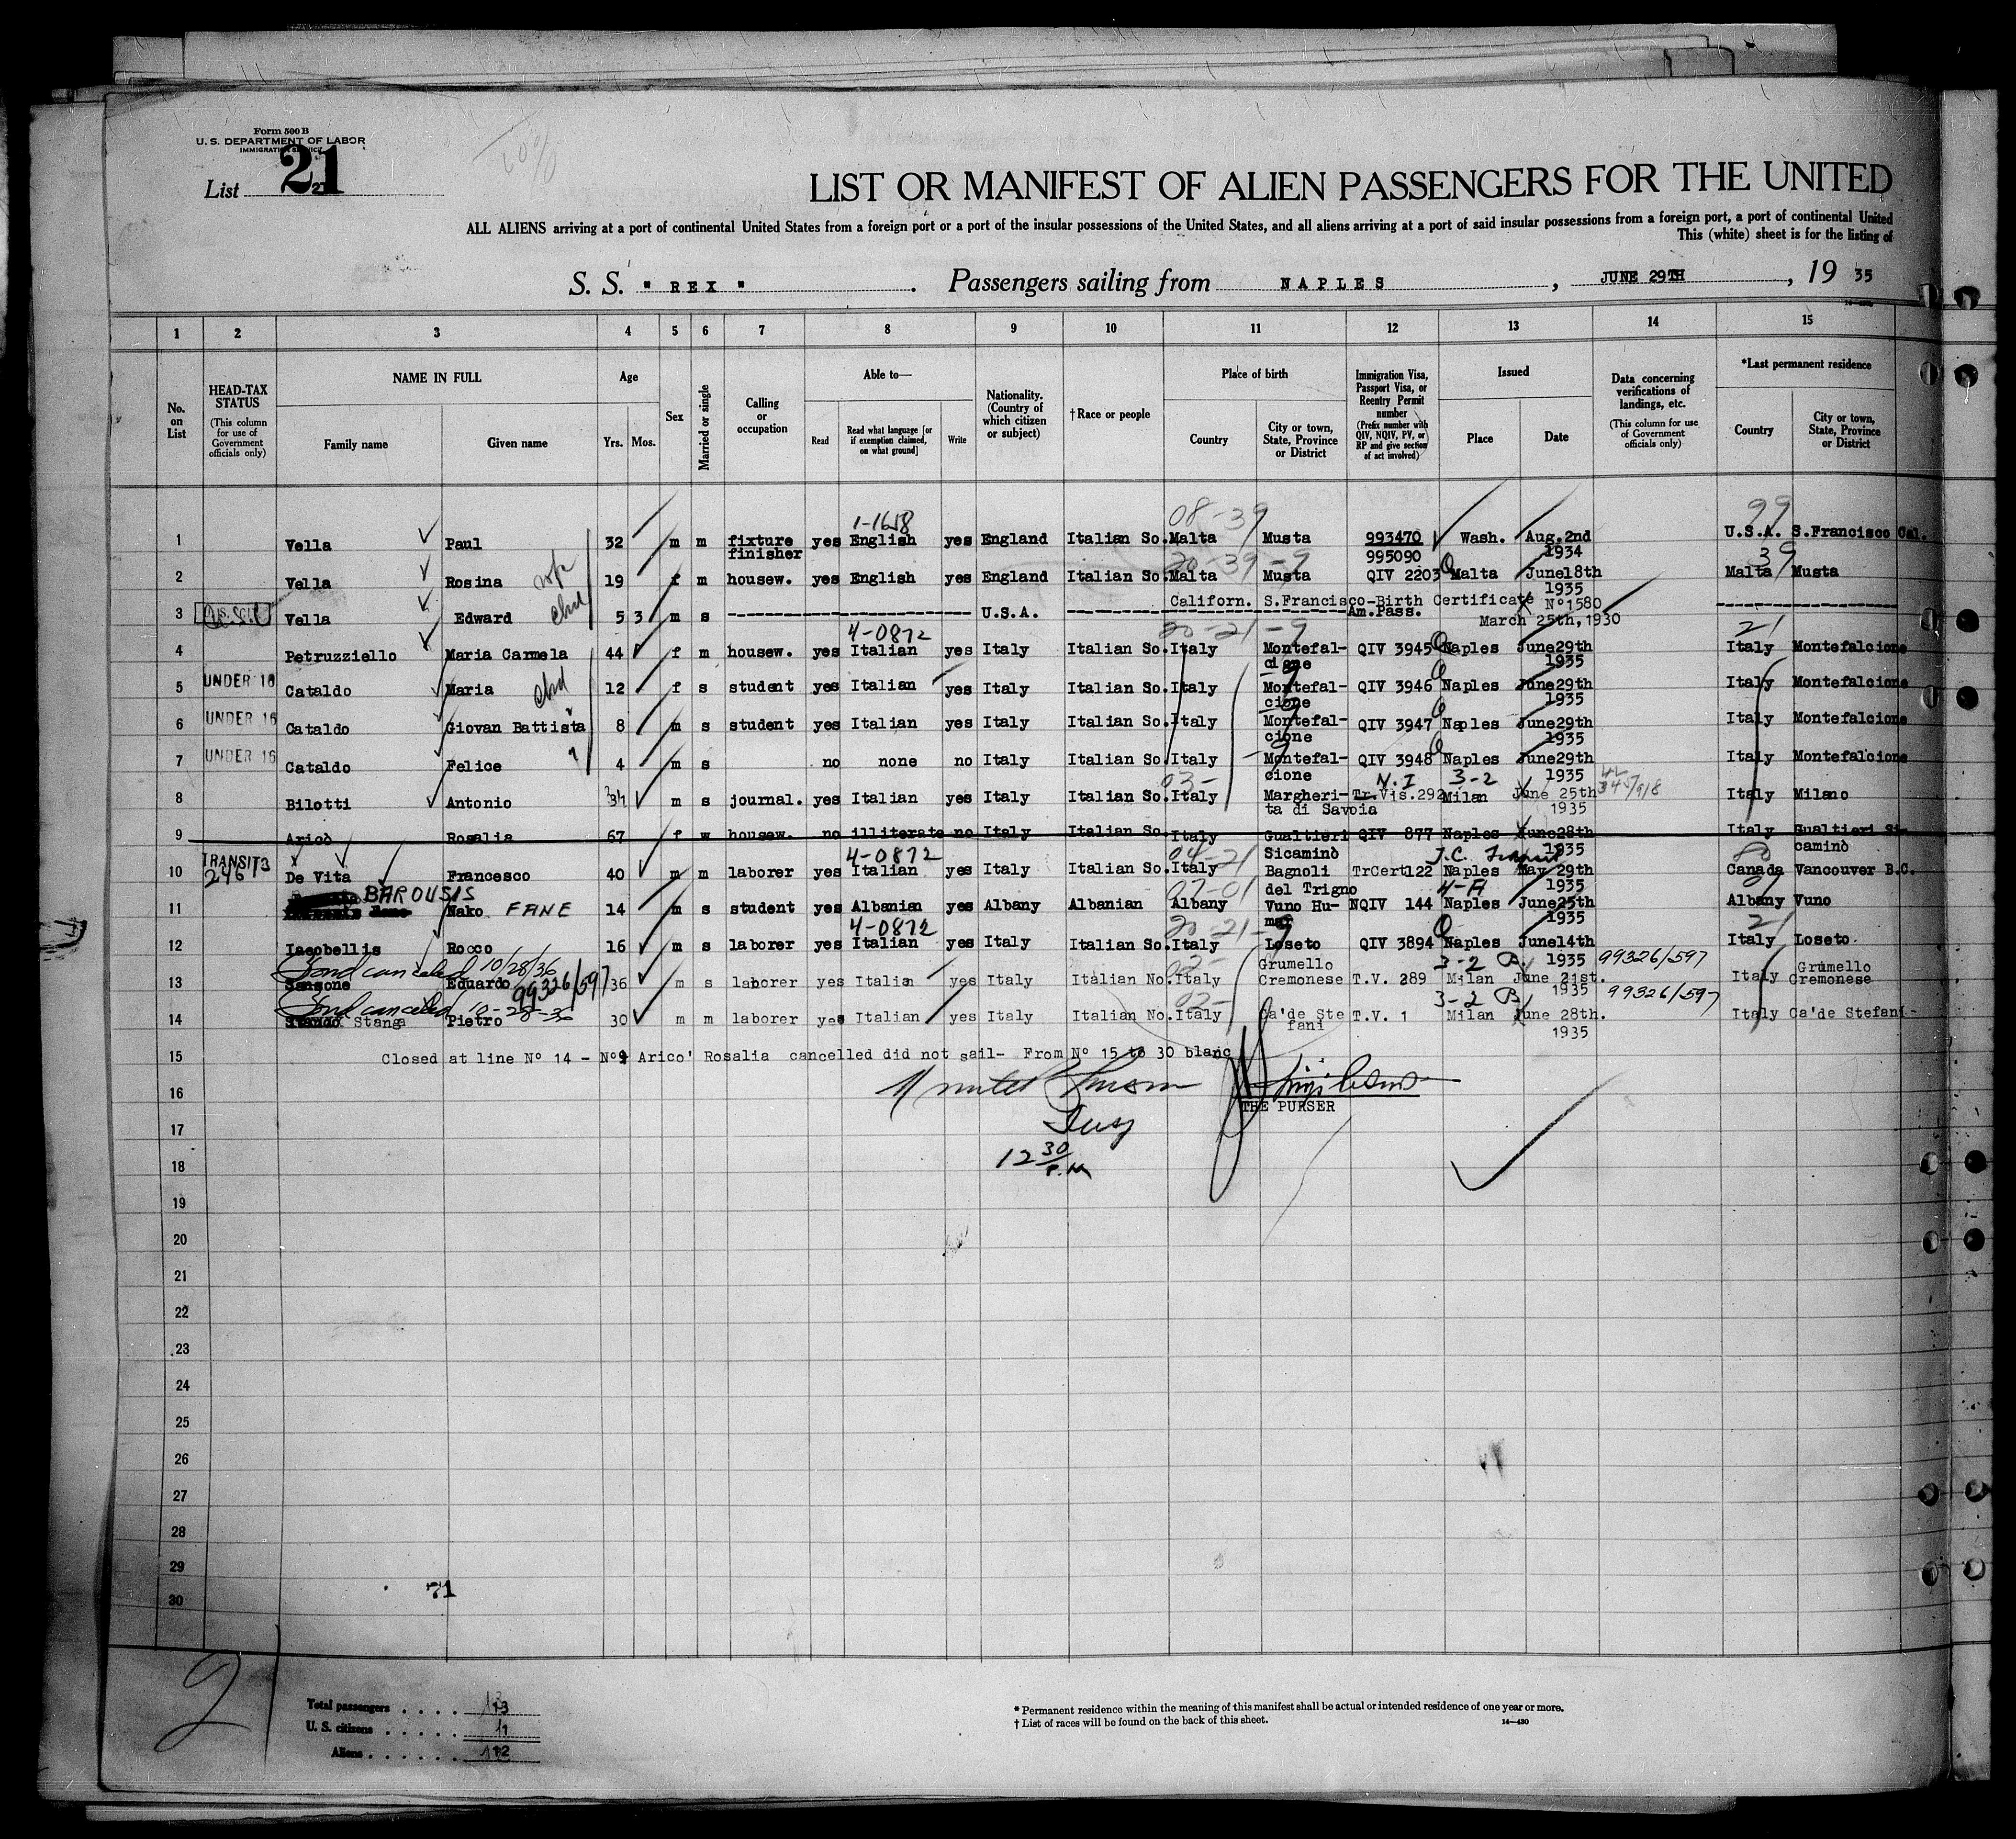 Form 500 B
U. S. DEPARTMENT OF LABOR
IMMIGRATION SERVICE
List 21
LIST OR MANIFEST OF ALIEN PASSENGERS FOR THE UNITED
ALL ALIENS arriving at a port of continental United States from a foreign port or a port of the insular possessions of the United States, and all aliens arriving at a port of said insular possessions from a foreign port, a port of continental United
This (white) sheet is for the listing of
S. S. " REX " . Passengers sailing from NAPLES , JUNE 29TH , 19 35
1 2 3 4 5 6 7 8 9 10 11 12 13 14 15
No. on List
HEAD-TAX STATUS (This column for use of Government officials only)
NAME IN FULL
Family name Given name
Age
Yrs. Mos.
Sex
Married or single
Calling or occupation
Able to—
Read Read what language [or if exemption claimed, on what ground] Write
Nationality. (Country of which citizen or subject)
†Race or people
Place of birth
Country City or town, State, Province or District
Immigration Visa, Passport Visa, or Reentry Permit number (Prefix number with QIV, NQIV, PV, or RP and give section of act involved)
Issued
Place Date
Data concerning verifications of landings, etc. (This column for use of Government officials only)
*Last permanent residence
Country City or town, State, Province or District
08-39 99
1 Vella Paul 32 m m fixture finisher yes English yes England Italian So. Malta Musta 993470 995090 Wash. Aug.2nd 1934 U.S.A. S.Francisco Cal.
20-39-9 39
2 Vella Rosina 19 f m housew. yes English yes England Italian So. Malta Musta QIV 2203 Malta June18th 1935 Malta Musta
3 Vella Edward 5 3 m s U.S.A. Californ. S.Francisco-Birth Certificate Nº1580 Am.Pass. March 25th,1930
4-0872 20-21-9 21
4 Petruzziello Maria Carmela 44 f m housew. yes Italian yes Italy Italian So. Italy Montefalcione QIV 3945 Naples June29th 1935 Italy Montefalcione
5 UNDER 16 Cataldo Maria 12 f s student yes Italian yes Italy Italian So. Italy Montefalcione QIV 3946 Naples June29th 1935 Italy Montefalcione
6 UNDER 16 Cataldo Giovan Battista 8 m s student yes Italian yes Italy Italian So. Italy Montefalcione QIV 3947 Naples June29th 1935 Italy Montefalcione
7 UNDER 16 Cataldo Felice 4 m s no none no Italy Italian So. Italy Montefalcione QIV 3948 Naples June29th 1935 Italy Montefalcione
03- N.I 3-2
8 Bilotti Antonio 34 m s journal. yes Italian yes Italy Italian So. Italy Margherita di Savoia Tr.Vis.292 Milan June 25th 1935 Italy Milano
9 Aricò Rosalia 67 f w housew. no illiterate no Italy Italian So. Italy Gualtieri Sicaminò QIV 877 Naples June28th 1935 Italy Gualtieri Sicaminò
TRANSIT 4-0872 04-21 Transit
10 De Vita Francesco 40 m m laborer yes Italian yes Italy Italian So. Italy Bagnoli del Trigno TrCert122 Naples May 29th 1935 Canada Vancouver B.C.
BAROUSIS 07-01 4-A
11 Nako FANE 14 m s student yes Albanian yes Albany Albanian Albany Vuno Humar NQIV 144 Naples June25th 1935 Albany Vuno
4-0872 20-21-9 21
12 Iacobellis Rocco 16 m s laborer yes Italian yes Italy Italian So. Italy Loseto QIV 3894 Naples June14th 1935 Italy Loseto
Bond canceled 10/28/36 99326/597 3-2 B. 99326/597
13 Sansone Eduardo 36 m s laborer yes Italian yes Italy Italian No. Italy Grumello Cremonese T.V. 289 Milan June 21st. 1935 Italy Grumello Cremonese
Bond canceled 10-28-36 3-2 B 99326/597
14 Stanga Pietro 30 m m laborer yes Italian yes Italy Italian No. Italy Ca'de Stefani T.V. 1 Milan June 28th. 1935 Italy Ca'de Stefani-
15 Closed at line Nº 14 - Nº9 Arico' Rosalia cancelled did not sail- From Nº 15 to 30 blanc
16 THE PURSER
17
18 12 30 P.M
19
20
21
22
23
24
25
26
27
28
29
71
30
21
Total passengers . . . . 13
U. S. citizens . . . . . 1
Aliens . . . . . . 12
* Permanent residence within the meaning of this manifest shall be actual or intended residence of one year or more.
† List of races will be found on the back of this sheet. 14—430